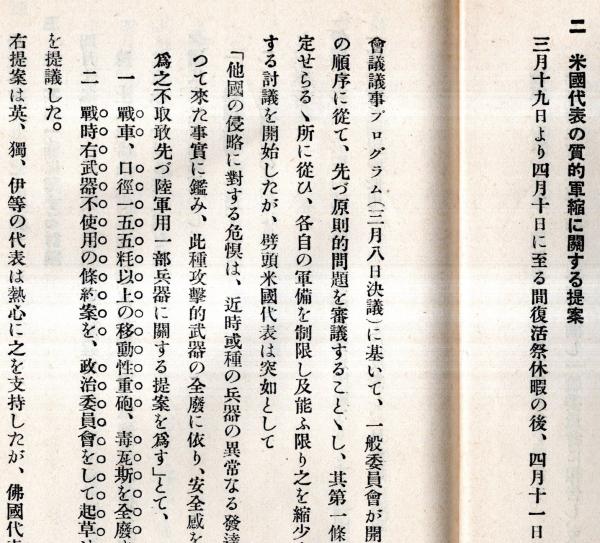 二　米國代表の質的軍縮に關する提案
三月十九日より四月十日に至る間復活祭休暇の後、四月十一日
會議議事プログラム(三月八日決議)に基いて、一般委員會が開
の順序に從て、先づ原則的問題を審議することヽし、其第一條
定せらるヽ所に從ひ、各自の軍備を制限し及能ふ限り之を縮少
する討議を開始したが、劈頭米國代表は突如として
「他國の侵略に對する危惧は、近時或種の兵器の異常なる發達
つて來た事實に鑑み、此種攻擊的武器の全廢に依り、安全感を
爲之不取敢先づ陸軍用一部兵器に關する提案を爲す」とて、
一　戰車、口徑一五五粍以上の移動性重砲、毒瓦斯を全廢
二　戰時右武器不使用の條約案を、政治委員會をして起草
を提議した。
右提案は英、獨、伊等の代表は熱心に之を支持したが、佛國代